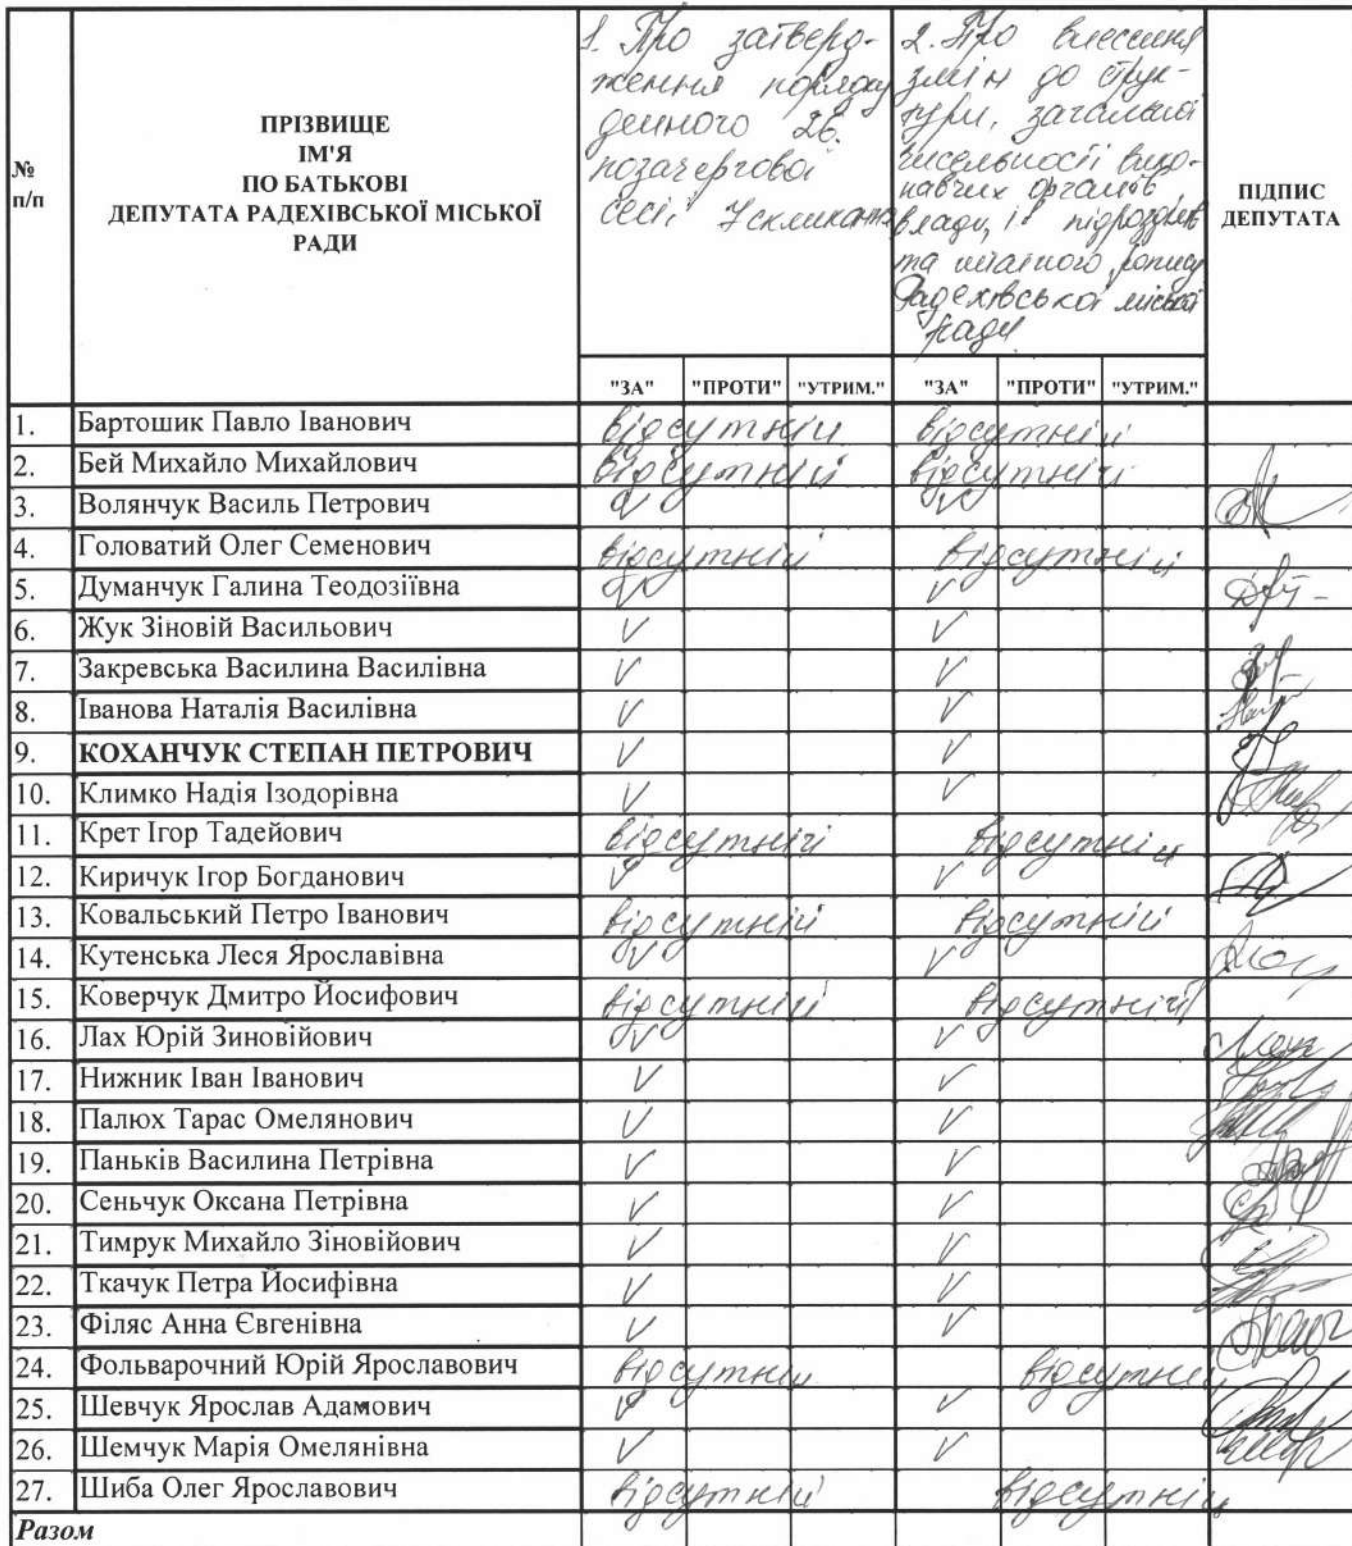 №
п/п
ПРІЗВИЩЕ
ІМ'Я
ПО БАТЬКОВІ
ДЕПУТАТА РАДЕХІВСЬКОЇ МІСЬКОЇ
РАДИ
1. Про затверд-
ження порядку
денного 26
позачергової
сесії 7 скликання
2. Про внесення
змін до струк-
тури, загальної
чисельності вико-
навчих органів
влади, її підрозділів
та штатного розпису
Радехівської міської
ради
ПІДПИС
ДЕПУТАТА
"ЗА" "ПРОТИ" "УТРИМ." "ЗА" "ПРОТИ" "УТРИМ."
1. Бартошик Павло Іванович відсутній відсутній
2. Бей Михайло Михайлович відсутній відсутній
3. Волянчук Василь Петрович V V
4. Головатий Олег Семенович відсутній відсутній
5. Думанчук Галина Теодозіївна V V
6. Жук Зіновій Васильович V V
7. Закревська Василина Василівна V V
8. Іванова Наталія Василівна V V
9. КОХАНЧУК СТЕПАН ПЕТРОВИЧ V V
10. Климко Надія Ізодорівна V V
11. Крет Ігор Тадейович відсутній відсутній
12. Киричук Ігор Богданович V V
13. Ковальський Петро Іванович відсутній відсутній
14. Кутенська Леся Ярославівна V V
15. Коверчук Дмитро Йосифович відсутній відсутній
16. Лах Юрій Зиновійович V V
17. Нижник Іван Іванович V V
18. Палюх Тарас Омелянович V V
19. Паньків Василина Петрівна V V
20. Сеньчук Оксана Петрівна V V
21. Тимрук Михайло Зіновійович V V
22. Ткачук Петра Йосифівна V V
23. Філяс Анна Євгенівна V V
24. Фольварочний Юрій Ярославович відсутній відсутній
25. Шевчук Ярослав Адамович V V
26. Шемчук Марія Омелянівна V V
27. Шиба Олег Ярославович відсутній відсутній
Разом